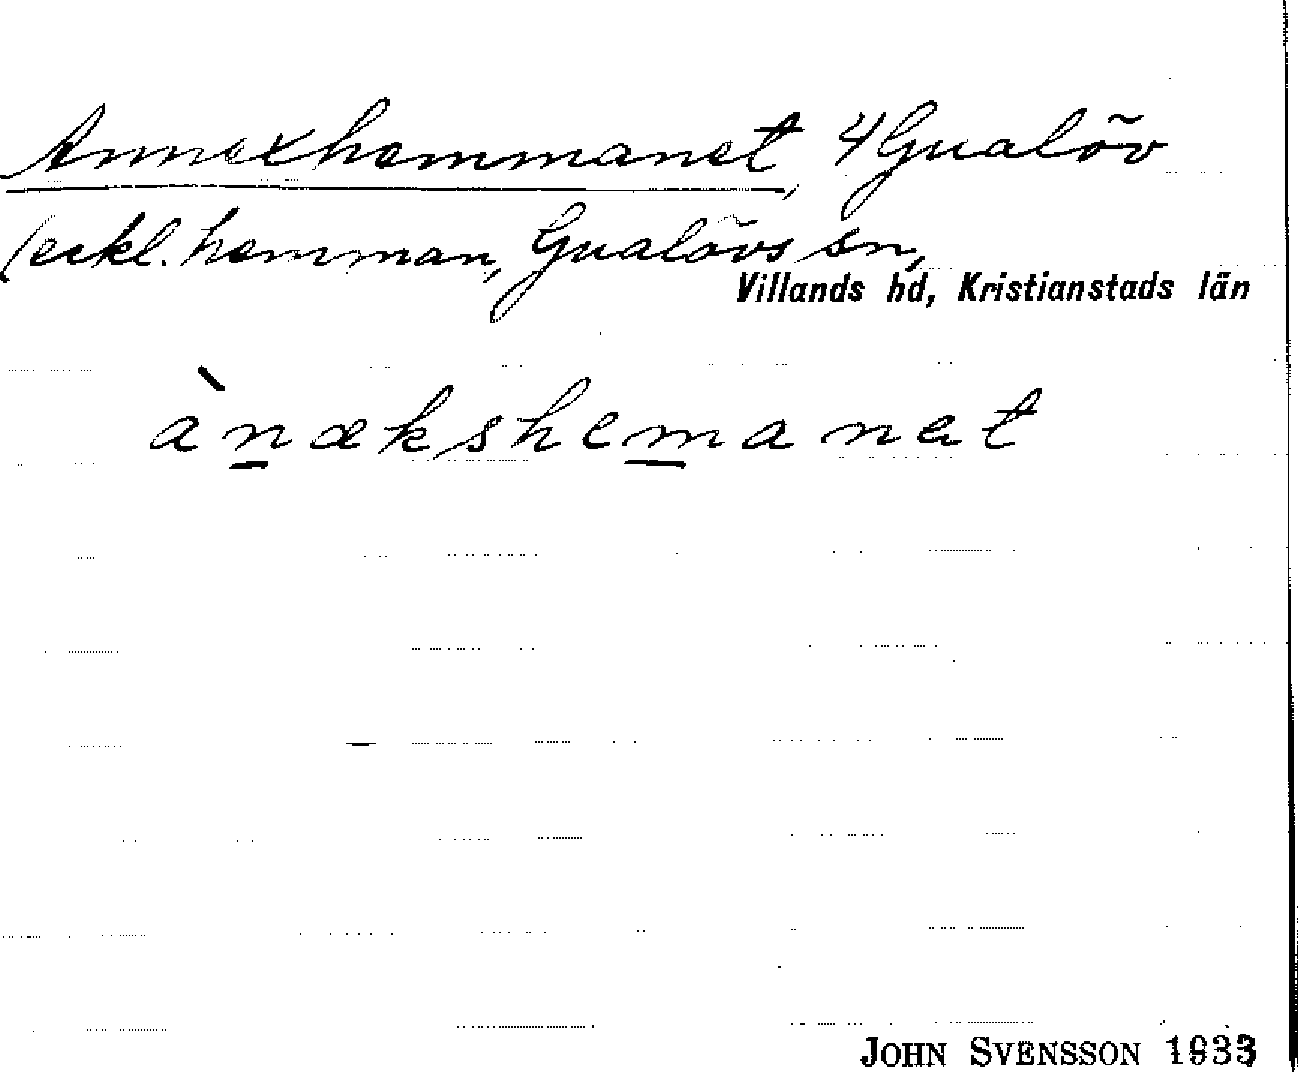 Annexhemmanet, 4 Gualöv
(eckl. hemman, Gualövs sn,
Villands hd, Kristianstads län
ànækshemanət
JOHN SVENSSON 1933